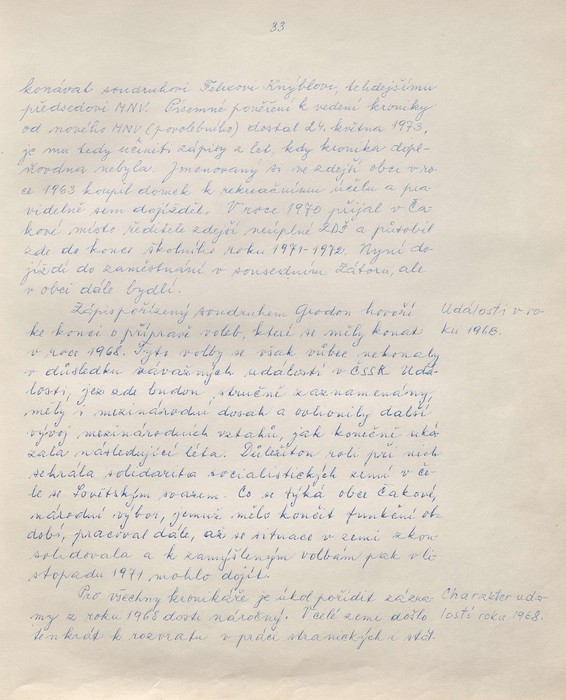 33
konával soudruhovi Felixovi Knýblovi, tehdejšímu
předsedovi MNV. Písemné pověření k vedení kroniky
od nového MNV (povolebního) dostal 24. května 1973,
je mu tedy učiniti zápisy z let, kdy kronika dopl-
ňována nebyla. Jmenovaný si ve zdejší obci v ro-
ce 1963 koupil domek k rekreačnímu účelu a pra-
videlně sem dojížděl. V roce 1970 přijal v Ča-
kové místo ředitele zdejší neúplné ZDŠ a působil
zde do konce školního roku 1971-1972. Nyní do-
jíždí do zaměstnání v sousedním Zátoru, ale
v obci dále bydlí.
Zápis pořízený soudruhem Grodou hovoří
Události v ro-
ke konci o přípravě voleb, které se měly konat
ku 1968.
v roce 1968. Tyto volby se však vůbec nekonaly
v důsledku závažných událostí v ČSSR. Udá-
losti, jež zde budou stručně zaznamenány,
měly i mezinárodní dosah a ovlivnily další
vývoj mezinárodních vztahů, jak konečně uká-
zala následující léta. Důležitou roli při nich
sehrála solidarita socialistických zemí v če-
le se Sovětským svazem. Co se týká obce Čakové,
národní výbor, jemuž mělo končit funkční ob-
dobí, pracoval dále, až se situace v zemi zkon-
solidovala a k zamýšleným volbám pak v li-
stopadu 1971 mohlo dojít.
Pro všechny kronikáře je úkol pořídit zázna-
Charakter udá-
my z roku 1968 dosti náročný. V celé zemi došlo
lostí roku 1968.
tenkrát k rozvratu v práci stranických i stát-